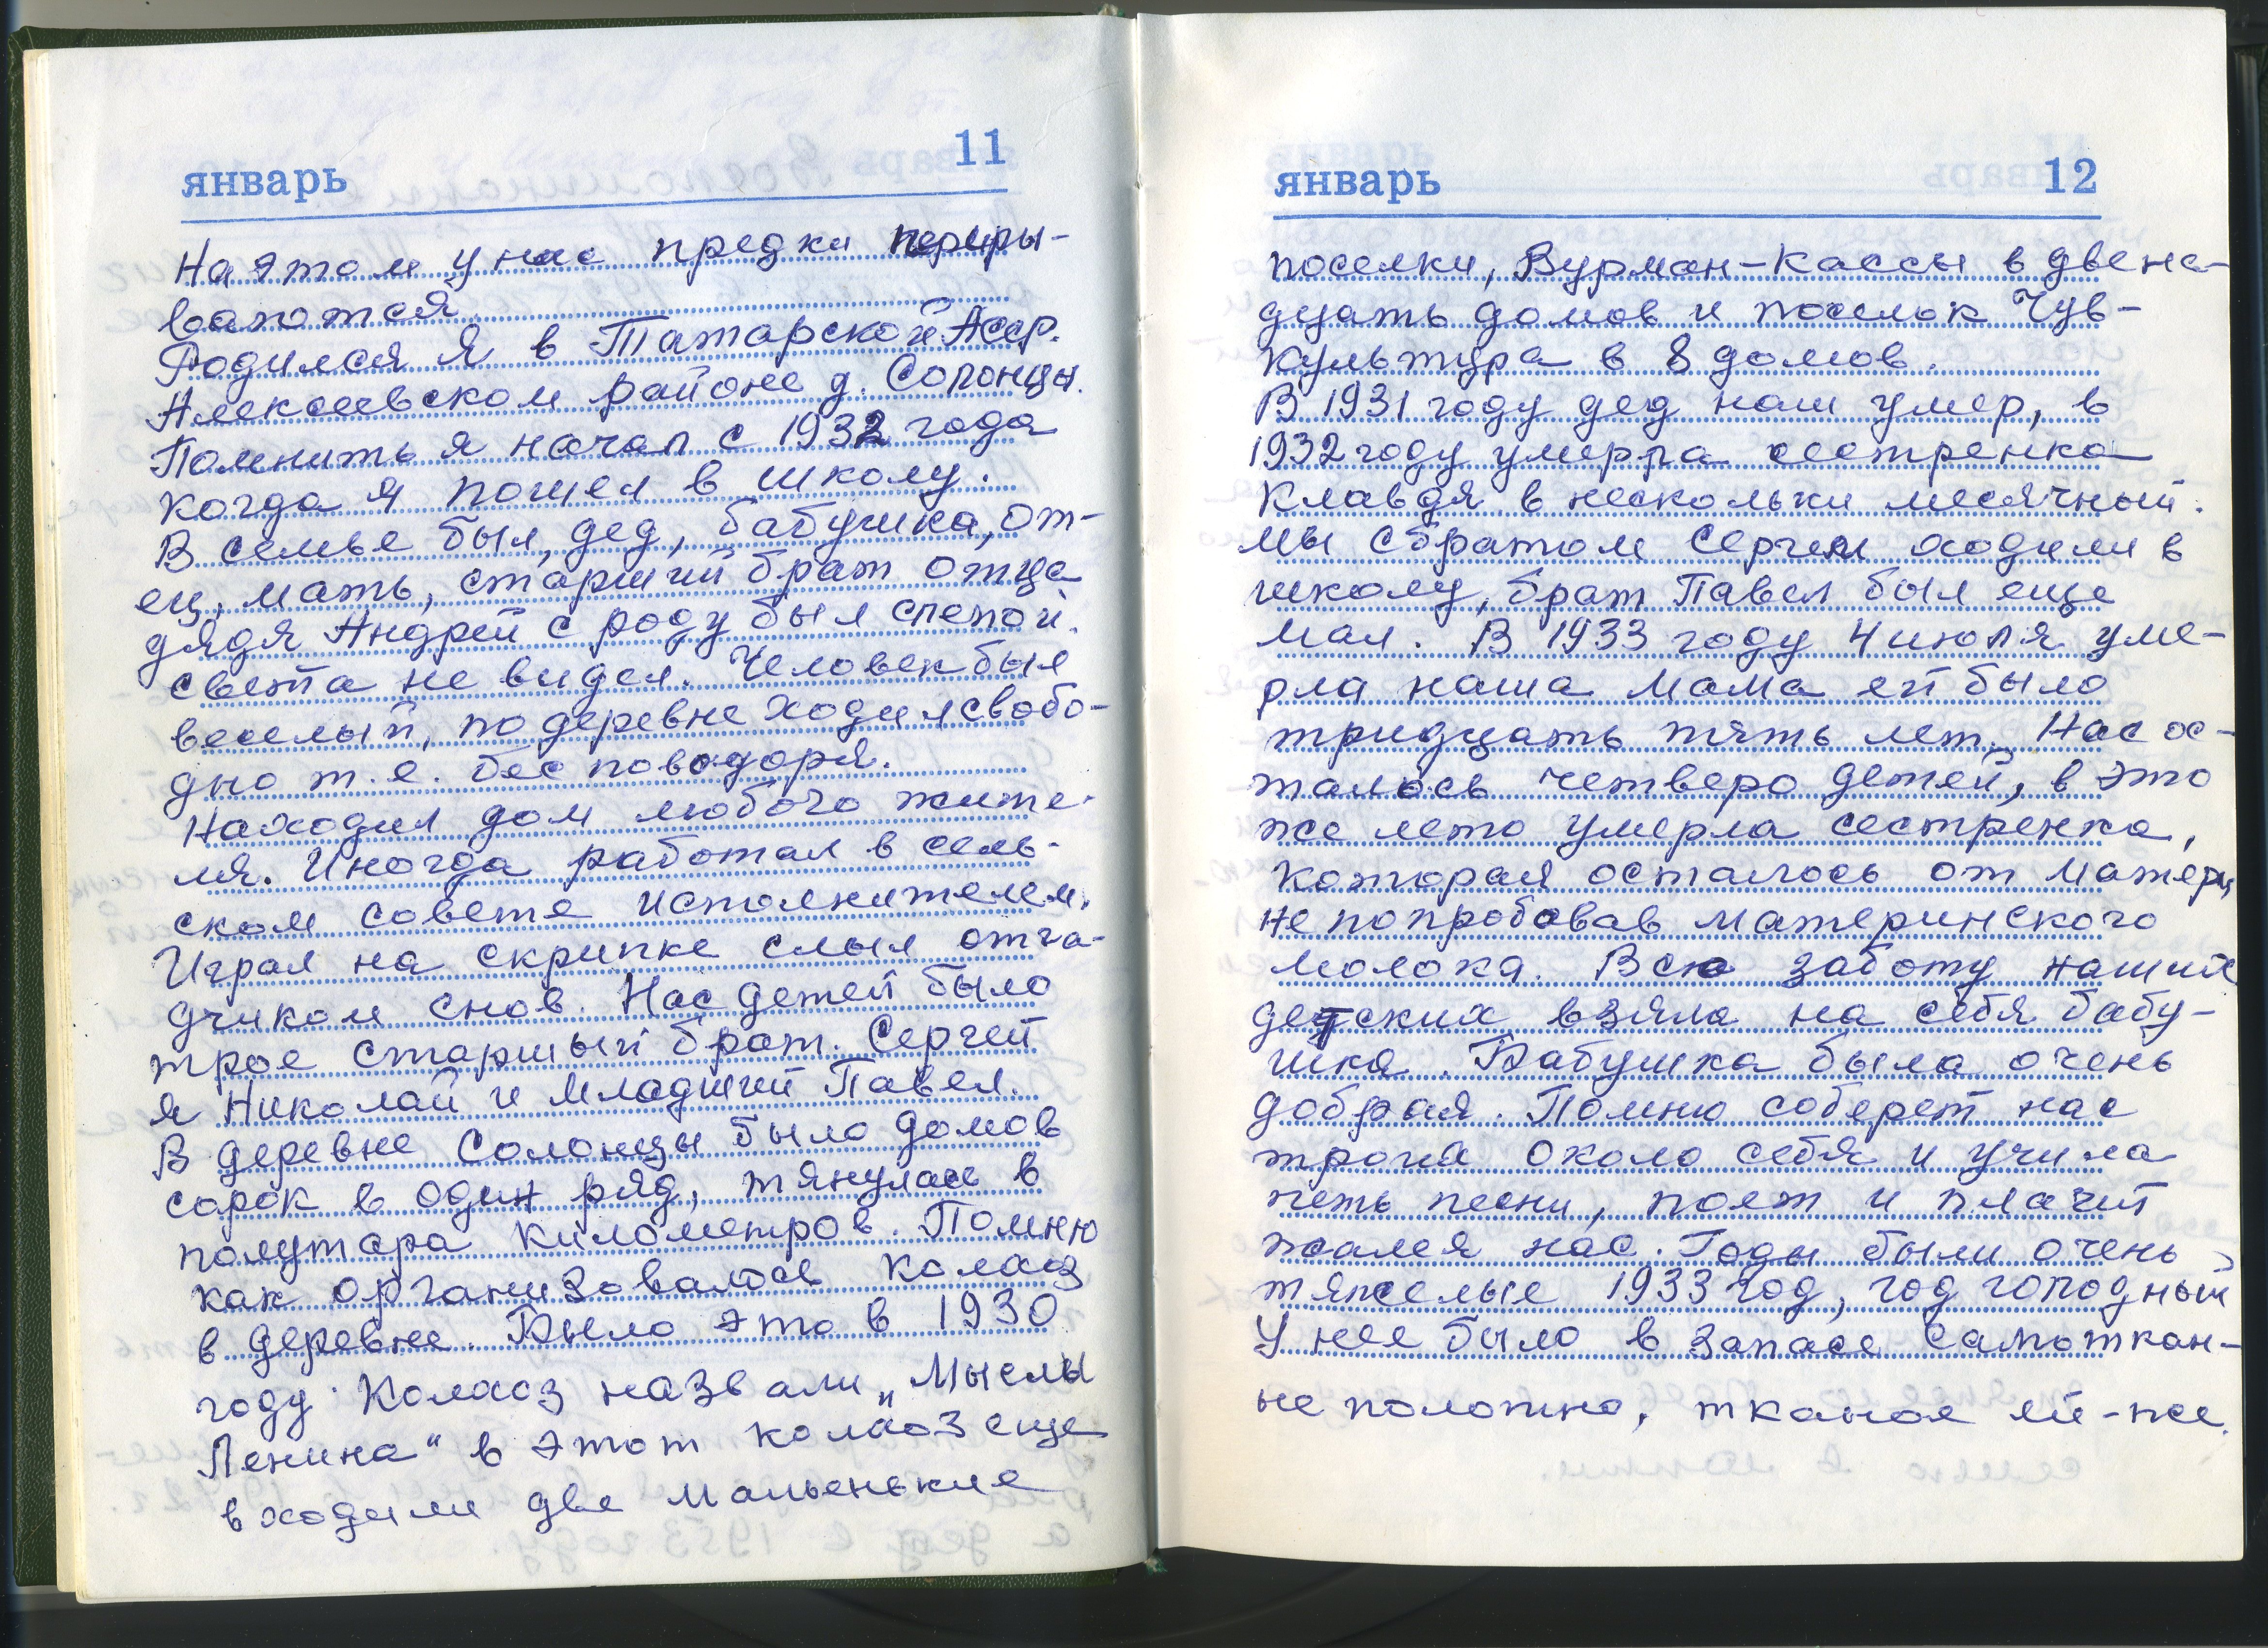 январь 11
На этом у нас предки перяры-
ваются.
Родился я в Татарской Асср.
Алексеевском районе д. Солонцы.
Помнить я начал с 1932 года
когда я пошел в школу.
В семье был, дед, бабушка, от-
ец, мать, старший брат отца
дядя Андрей с роду был слепой.
света не видел. Человек был
веселый, по деревне ходил свобо-
дно т.е. без поводоря.
Находил дом любого жите-
ля. Иногда работал в сель-
ском совете исполнителем.
Играл на скрипке слыл отга-
дчиком снов. Нас детей было
трое старшый брат. Сергей
я Николай и младший Павел.
В деревне Солонцы было домов
сорок в один ряд, тянулась в
полутара километров. Помню
как организовалось колхоз
в деревне. Было это в 1930
году. Колхоз назвали „Мыслы
Ленина" в этот колхоз еще
входили две маленькие
январь 12
поселки, Вурман-Кассы в двена-
дцать домов и поселок Чув-
культура в 8 домов.
В 1931 году дед наш умер, в
1932 году умерла сестренка
Клавдя в нескольки месячный.
мы с братом Сергеем ходили в
школу, брат Павел был еще
мал. В 1933 году 4 июля уме-
рла наша мама ей было
тридцать пять лет. Нас ос-
талось четверо детей, в это
же лето умерла сестренка,
которая осталось от матери
не попробовав материнского
молока. Всю заботу наших
детских взяла на себя бабу-
шка. Бабушка была очень
добрая. Помню соберет нас
троих около себя и учила
петь песни, поет и плачит
жалея нас. Годы были очень
тяжелые 1933 год, год голодный
У нее было в запасе самоткан-
не полотно, тканое ей-же.